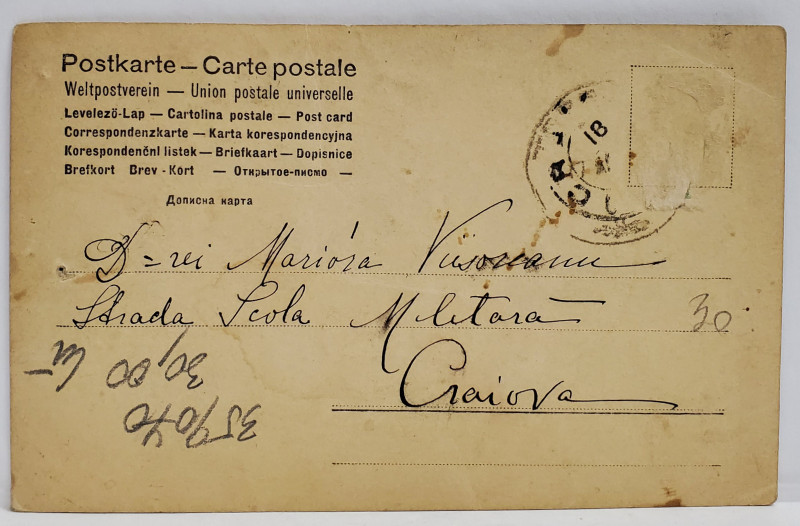 Postkarte — Carte postale
Weltpostverein — Union postale universelle
Levelező-Lap — Cartolina postale — Post card
Correspondenzkarte — Karta korespondencyjna
Korespondenční listek — Briefkaart — Dopisnice
Brefkort Brev-Kort — Открытое-письмо —
Дописна карта
18
D=rei Marióra
Strada Scola Militară
30
Craiova
30,00